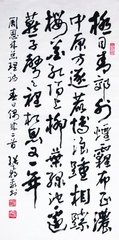 極目青郊外煙霾布正濃
中原方逐鹿博浪踵相蹤
櫻花紅陌上柳葉綠池邊
燕子聲聲裡相思又一年
周恩來總理詩春日偶成二首